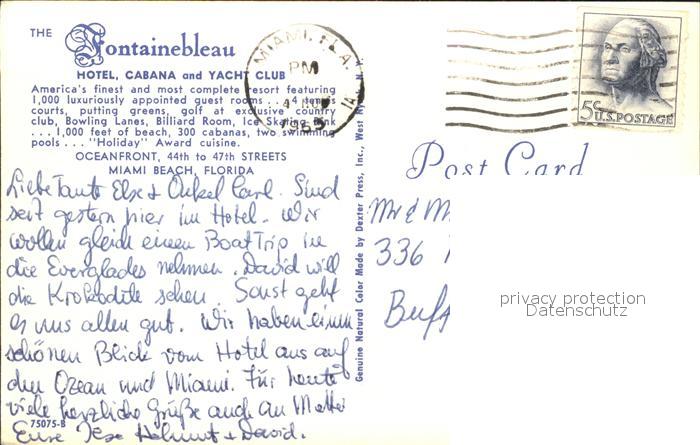 THE
Fontainebleau
HOTEL, CABANA and YACHT CLUB
America's finest and most complete resort featuring
1,000 luxuriously appointed guest rooms . . . 4 tennis
courts, putting greens, golf at exclusive country
club, Bowling Lanes, Billiard Room, Ice Skating Rink
. . . 1,000 feet of beach, 300 cabanas, two swimming
pools . . . "Holiday" Award cuisine.
OCEANFRONT, 44th to 47th STREETS
MIAMI BEACH, FLORIDA
MIAMI, FLA.
PM
5¢ U.S. POSTAGE
Post Card
Genuine Natural Color Made by Dexter Press, Inc., West Nyack, N. Y.
Liebe Tante Else & Onkel Carl. Sind
seit gestern hier im Hotel. Wir
wollen gleich einen Boat Trip in
die Everglades nehmen. David will
die Krokodile sehen. Sonst geht
es uns allen gut. Wir haben einen
schönen Blick vom Hotel aus auf
den Ozean und Miami. Für heute
viele herzliche Grüße auch an
Eure Helmut + David.
75075-B
Mr & M
336
Buff
privacy protection
Datenschutz